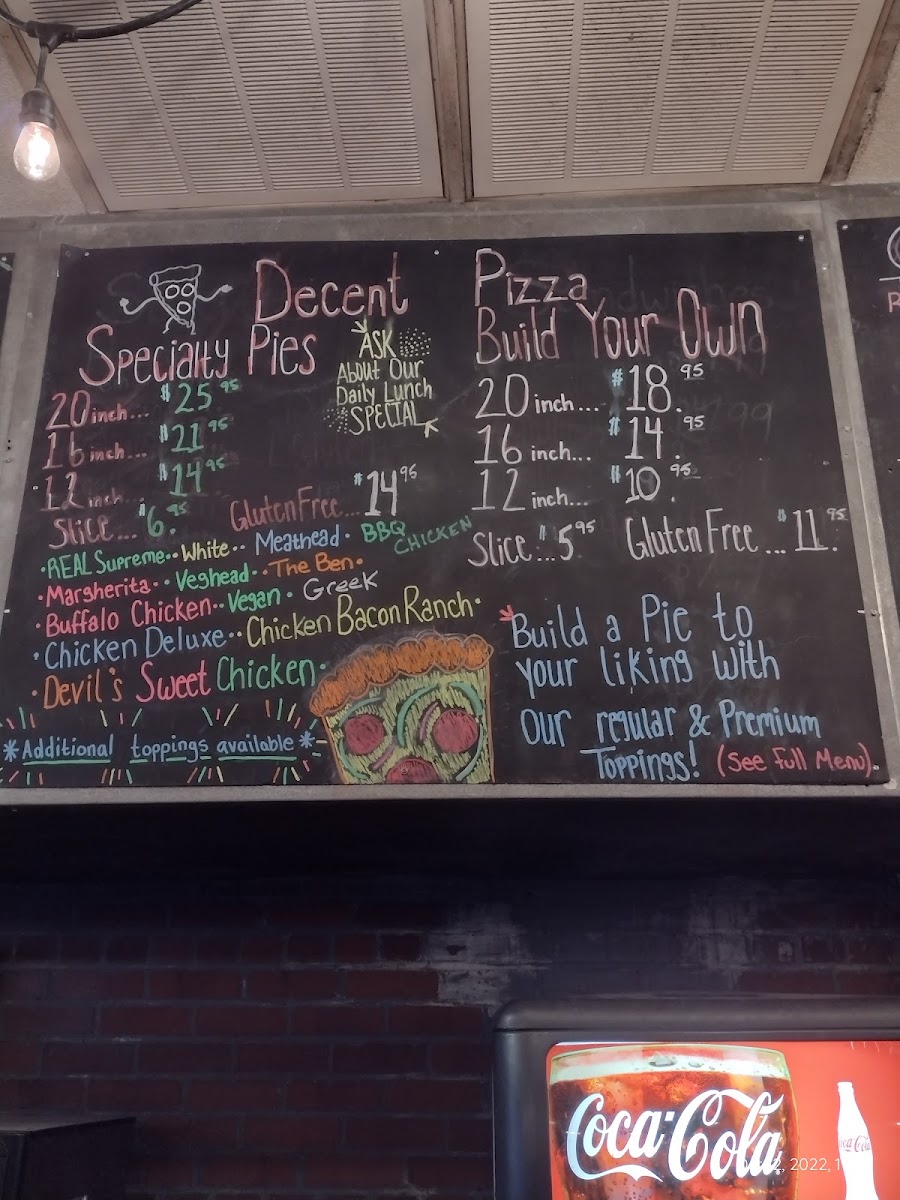 Decent Pizza
Specialty Pies
ASK
About Our
Daily Lunch
*SPECIAL
20 inch... $25.95
16 inch... $21.95
12 inch... $14.95
Slice... $6.95 Gluten Free... $14.95
·REAL Supreme·· White·· Meathead· BBQ CHICKEN
·Margherita·· Veghead·· The Ben·
·Buffalo Chicken·· Vegan· Greek
·Chicken Deluxe·· Chicken Bacon Ranch·
·Devil's Sweet Chicken·
*Additional toppings available*
Build Your Own
20 inch... $18.95
16 inch... $14.95
12 inch... $10.95
Slice... $5.95 Gluten Free... $11.95
*Build a Pie to
your liking with
Our regular & Premium
Toppings! (See Full Menu).
Coca-Cola
Coca-Cola